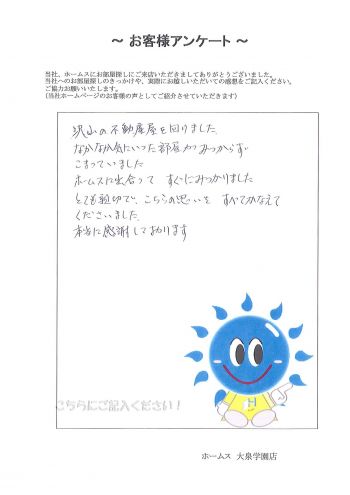 ～ お客様アンケート ～
当社、ホームスにお部屋探しにご来店いただきましてありがとうございました。
当社へのお部屋探しのきっかけや、実際にお越しいただいての感想をご記入ください。
ご協力お願いいたします。
(当社ホームページのお客様の声としてご紹介させていただきます)
沢山の不動産屋を回りました。
なかなか気にいった部屋がみつからず
こまっていました
ホームスに出会って すぐにみつかりました
とても親切で、こちらの思いを すべてかなえて
くださいました。
本当に感謝しております
こちらにご記入ください！
ホームス 大泉学園店